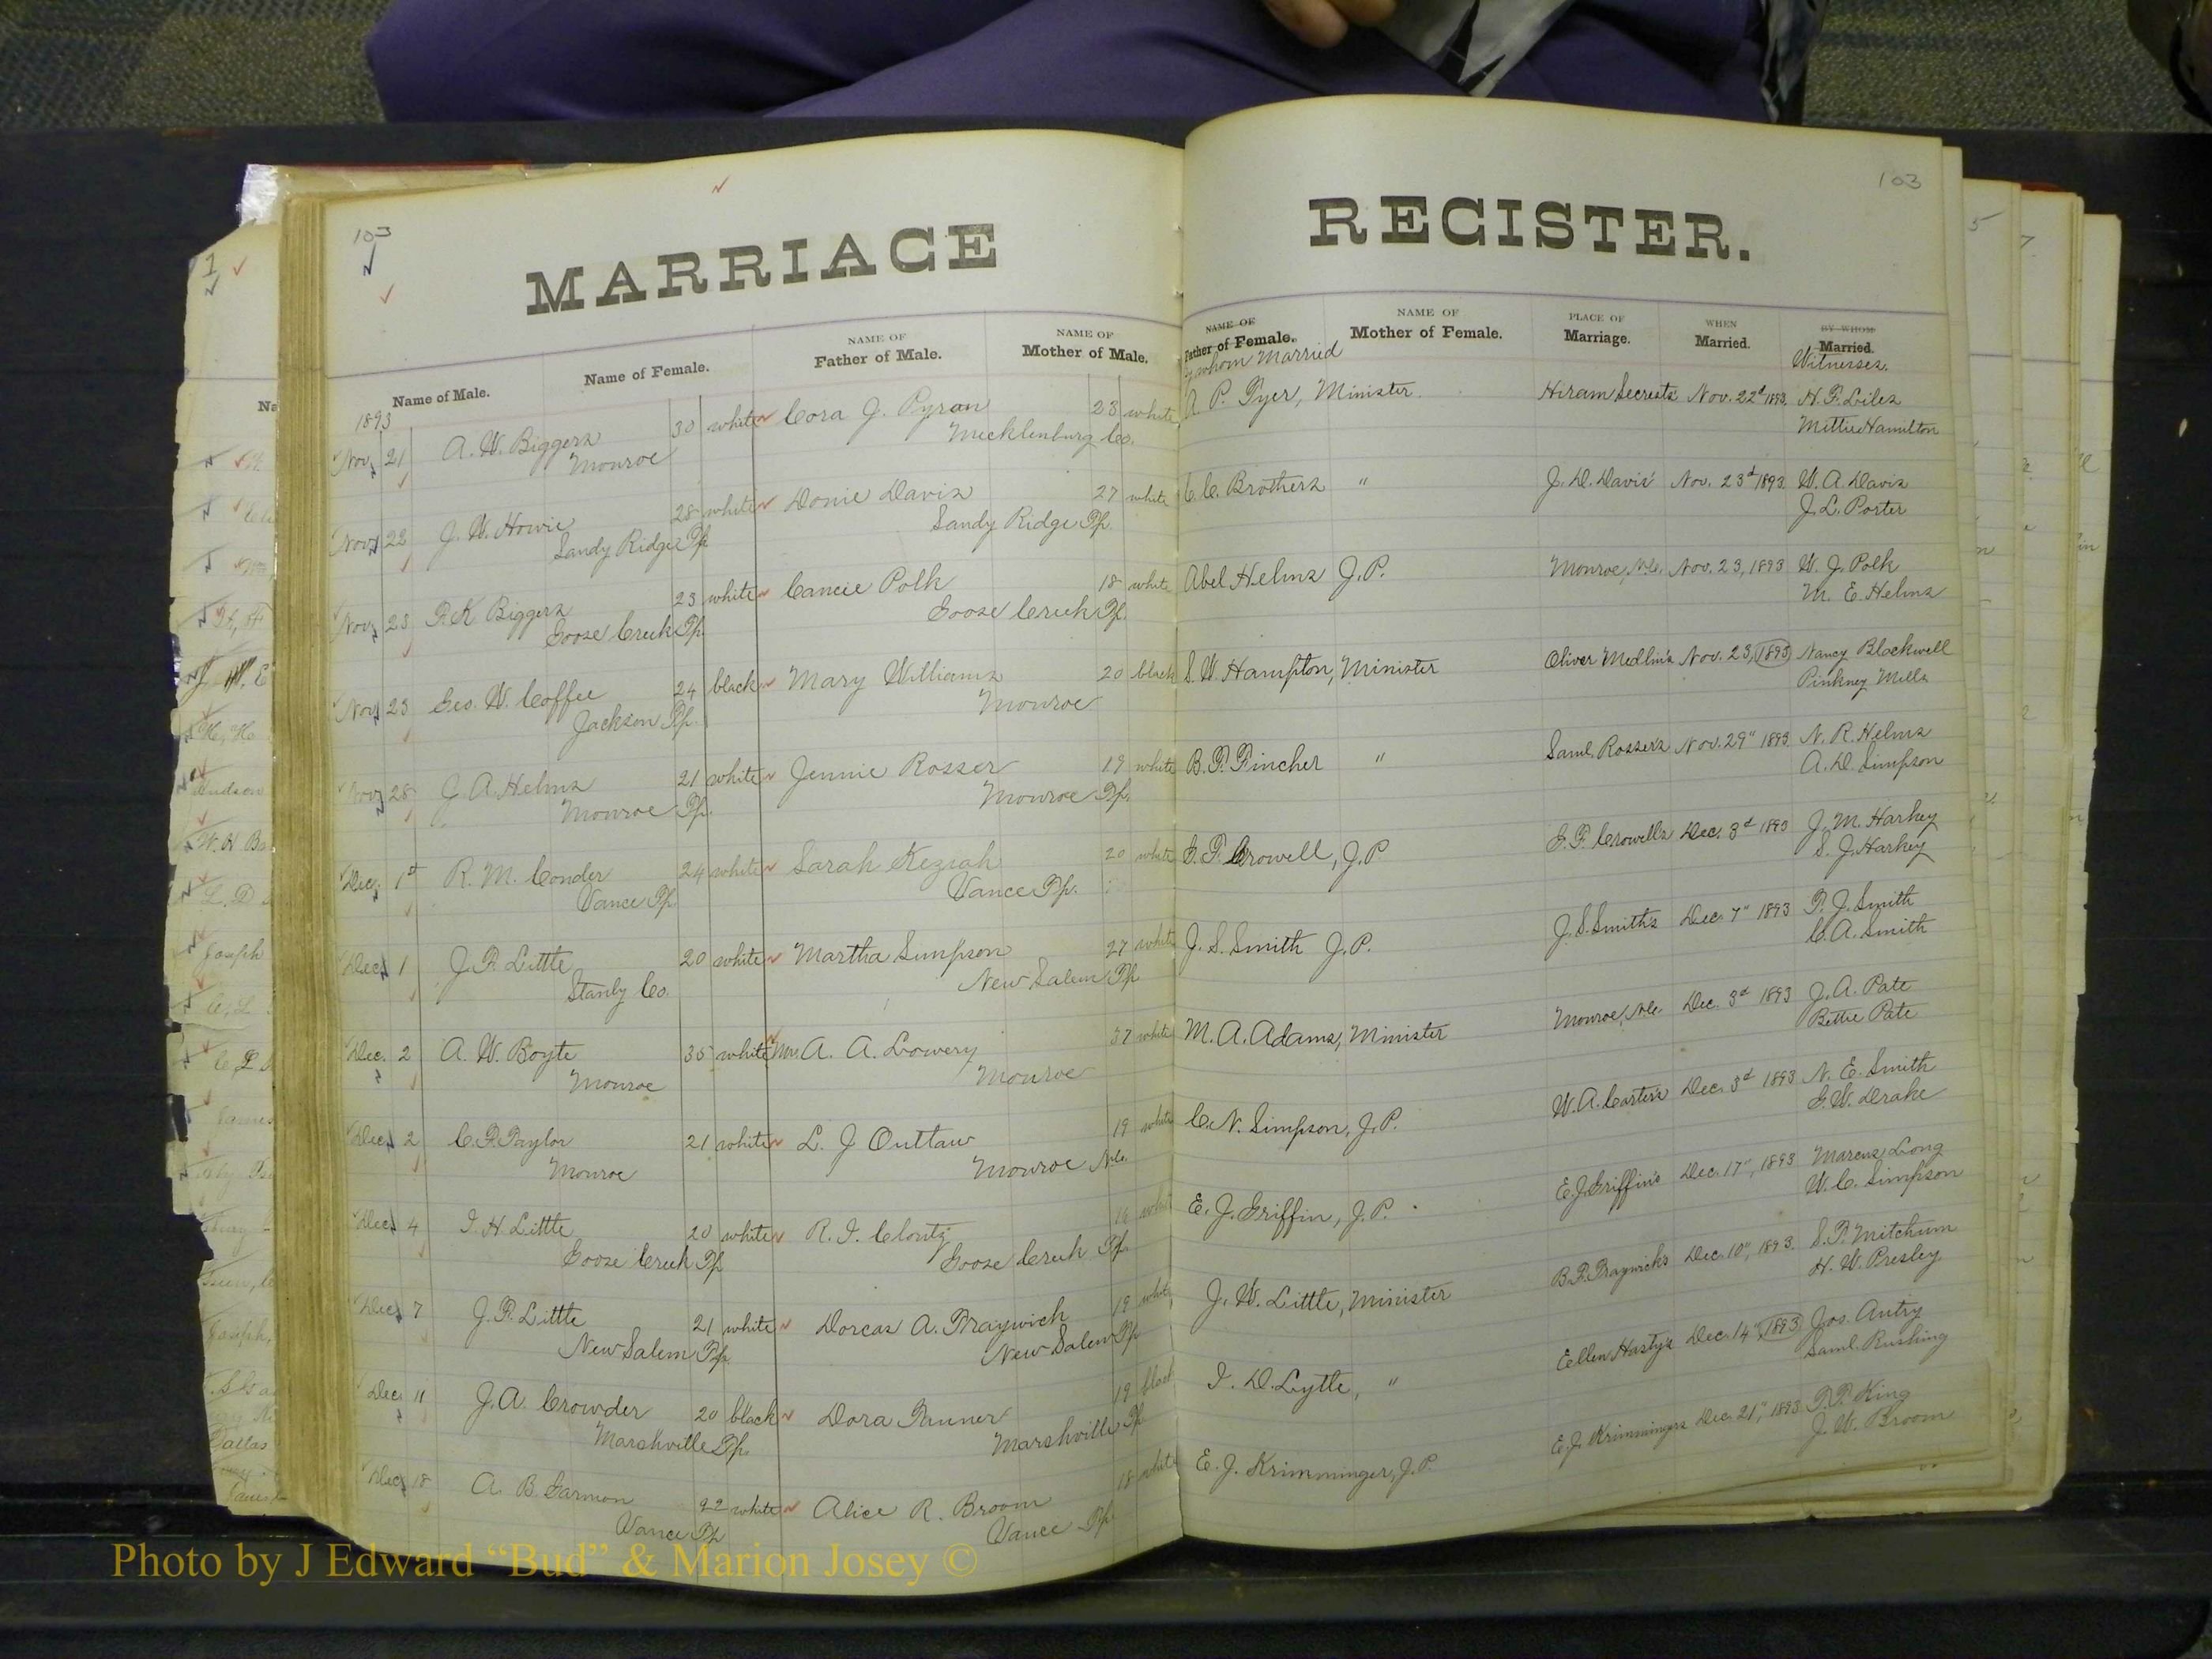 103
103
MARRIAGE REGISTER.
Name of Male.
Name of Female.
NAME OF Father of Male.
NAME OF Mother of Male.
NAME OF Father of Female.
NAME OF Mother of Female.
PLACE OF Marriage.
WHEN Married.
BY WHOM Married.
whom Married
Witnesses.
1893
Nov. 21 A. W. Biggers 30 white Cora J. Pyran 23 white A. P. Tyer, Minister. Hiram Secrests Nov. 22d 1893. H. F. Liles
Monroe Mecklenburg Co. Mittie Hamilton
Nov. 22 J. W. Howie 28 white Donie Davis 27 white C. C. Brothers " J. D. Davis' Nov. 23d 1893. W. A. Davis
Sandy Ridge Tp. Sandy Ridge Tp. J. L. Porter
Nov. 23 F. K. Biggers 23 white Cancie Polk 18 white Abel Helms J.P. Monroe, N.C. Nov. 23, 1893 W. J. Polk
Goose Creek Tp. Goose Creek Tp. M. E. Helms
Nov. 23 Geo. W. Coffee 24 black Mary Williams 20 black S. W. Hampton, Minister Oliver Medlin's Nov. 23, 1893 Nancy Blackwell
Jackson Tp. Monroe Pinkney Mills
Nov. 28 J. A. Helms 21 white Jennie Rosser 19 white B. F. Fincher " Saml. Rosser's Nov. 29" 1893. N. R. Helms
Monroe Tp. Monroe Tp. A. D. Simpson
Dec. 1st R. M. Conder 24 white Sarah Keziah 20 white Crowell, J.P. Crowells Dec. 3d 1893 J. M. Harkey
Vance Tp. Vance Tp. S. J. Harkey
Dec. 1 J. F. Little 20 white Martha Simpson 27 white J. S. Smith J.P. J. S. Smith's Dec. 7" 1893 T. J. Smith
Stanly Co. New Salem Tp. C. A. Smith
Dec. 2 A. W. Boyte 35 white Mrs. A. A. Lowery 37 white M. A. Adams, Minister Monroe, N.C. Dec. 3d 1893 J. A. Pate
Monroe Monroe Bettie Pate
Dec. 2 C. F. Taylor 21 white L. J Outlaw 19 white C. N. Simpson, J.P. W. A. Carter's Dec. 3d 1893 N. E. Smith
Monroe Monroe N.C. G. W. Drake
Dec. 4 I. H. Little 20 white R. I. Clontz 16 white E. J. Griffin, J.P. E. J. Griffin's Dec. 17", 1893 Marcus Long
Goose Creek Tp. Goose Creek Tp. W. C. Simpson
Dec. 7 J. F. Little 21 white Dorcas A. Traywick 19 white J. W. Little, Minister B. F. Traywick's Dec. 10", 1893. S. F. Mitchum
New Salem Tp. New Salem Tp. H. W. Presley
Dec. 11 J. A. Crowder 20 black Dora Tanner 19 black I. D. Lytle, " Ellen Hasty's Dec. 14", 1893. Jos. Autry
Marshville Tp. Marshville Tp. Saml. Rushing
Dec. 18 A. B. Garmon 22 white Alice R. Broom 18 white E. J. Krimminger, J.P. E. J. Krimmingers Dec. 21", 1893. King
Vance Tp. Vance Tp. J. W. Broom
Photo by J Edward “Bud” & Marion Josey ©